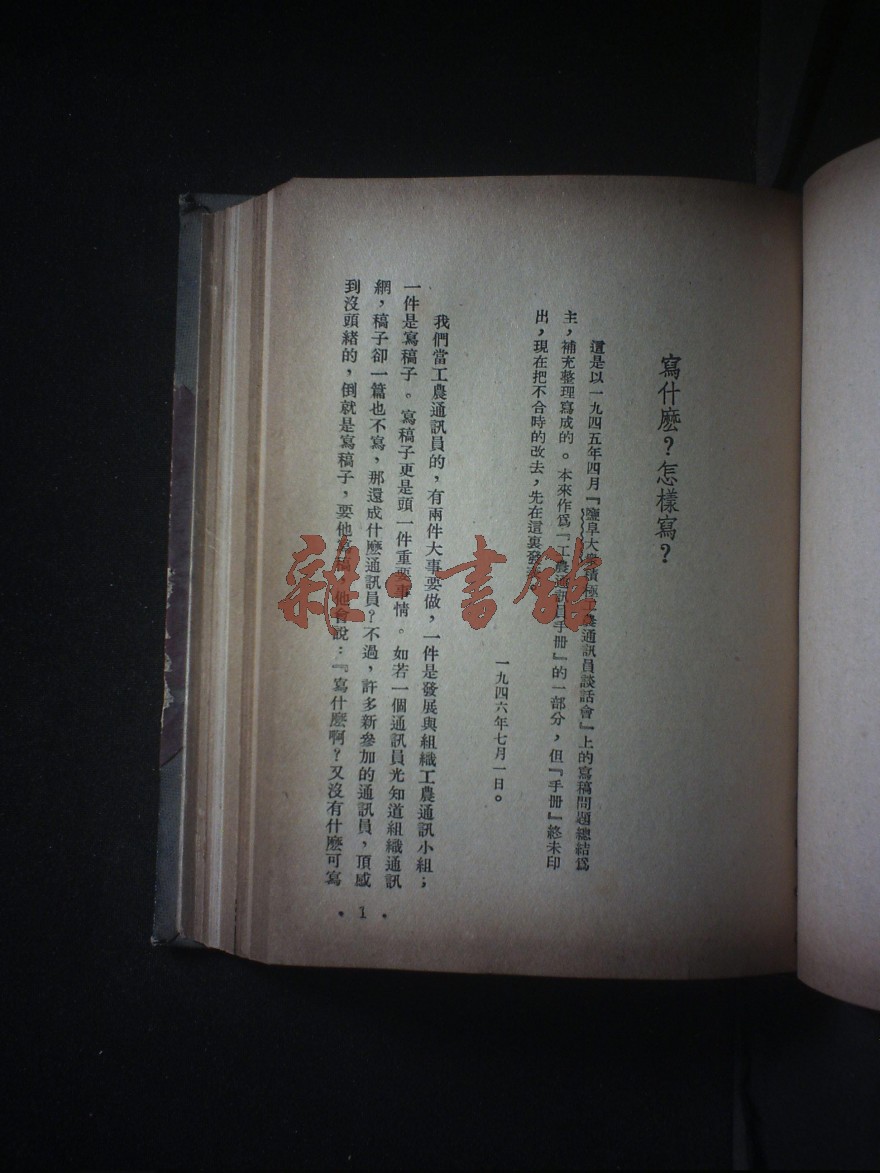 寫什麽？怎樣寫？
這是以一九四五年四月『鹽阜大衆積極工農通訊員談話會』上的寫稿問題總結爲
主，補充整理寫成的。本來作爲『工農通訊員手册』的一部分，但『手册』終未印
出，現在把不合時的改去，先在這裏發
一九四六年七月一日。
我們當工農通訊員的，有兩件大事要做，一件是發展與組織工農通訊小組；
一件是寫稿子。寫稿子更是頭一件重要事情。如若一個通訊員光知道組織通訊
網，稿子卻一篇也不寫，那還成什麽通訊員？不過，許多新參加的通訊員，頂感
到沒頭緒的，倒就是寫稿子，要他寫稿，他會說：『寫什麽啊？又沒有什麽可寫
·1·
雜·書館